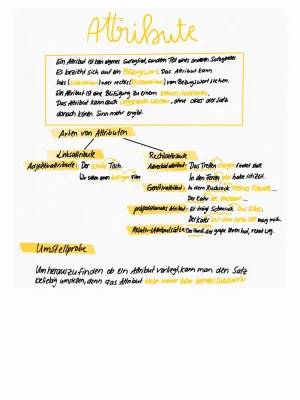 Attribute
Ein Attribut ist kein eigenes Satzglied, sondern Teil eines anderen Satzgliedes
Es bezieht sich auf ein Bezugswort. Das Attribut kann
links (Linksattribut) oder rechts (Rechtsattribut) vom Bezugswort stehen.
Ein Attribut ist eine Beifügung zu einem Nomen/Substantiv.
Das Attribut kann auch weggelassen werden, ohne dass der Satz
danach keinen Sinn mehr ergibt.
Arten von Attributen
Linksattribute Rechtsattribute
Adjektivattribute: Der schöne Tisch. Adverbialattribut: Das Treffen findet statt
Wir sahen einen Film In den Ferien habe ich Zeit.
Genitivattribut: In dem Rucksack meines Freundes...
Der Kater der Nachbarin...
präpositionales Attribut: Er trägt Schmuck aus Silber.
Der Kater mit dem mag mich.
Relativ-(Attribut)sätze: Der Hund, der große Ohren hat, rennt weg.
Umstellprobe
Um herauszufinden ob ein Attribut vorliegt, kann man den Satz
beliebig umstellen, denn das Attribut bleibt immer beim Nomen/Substantiv